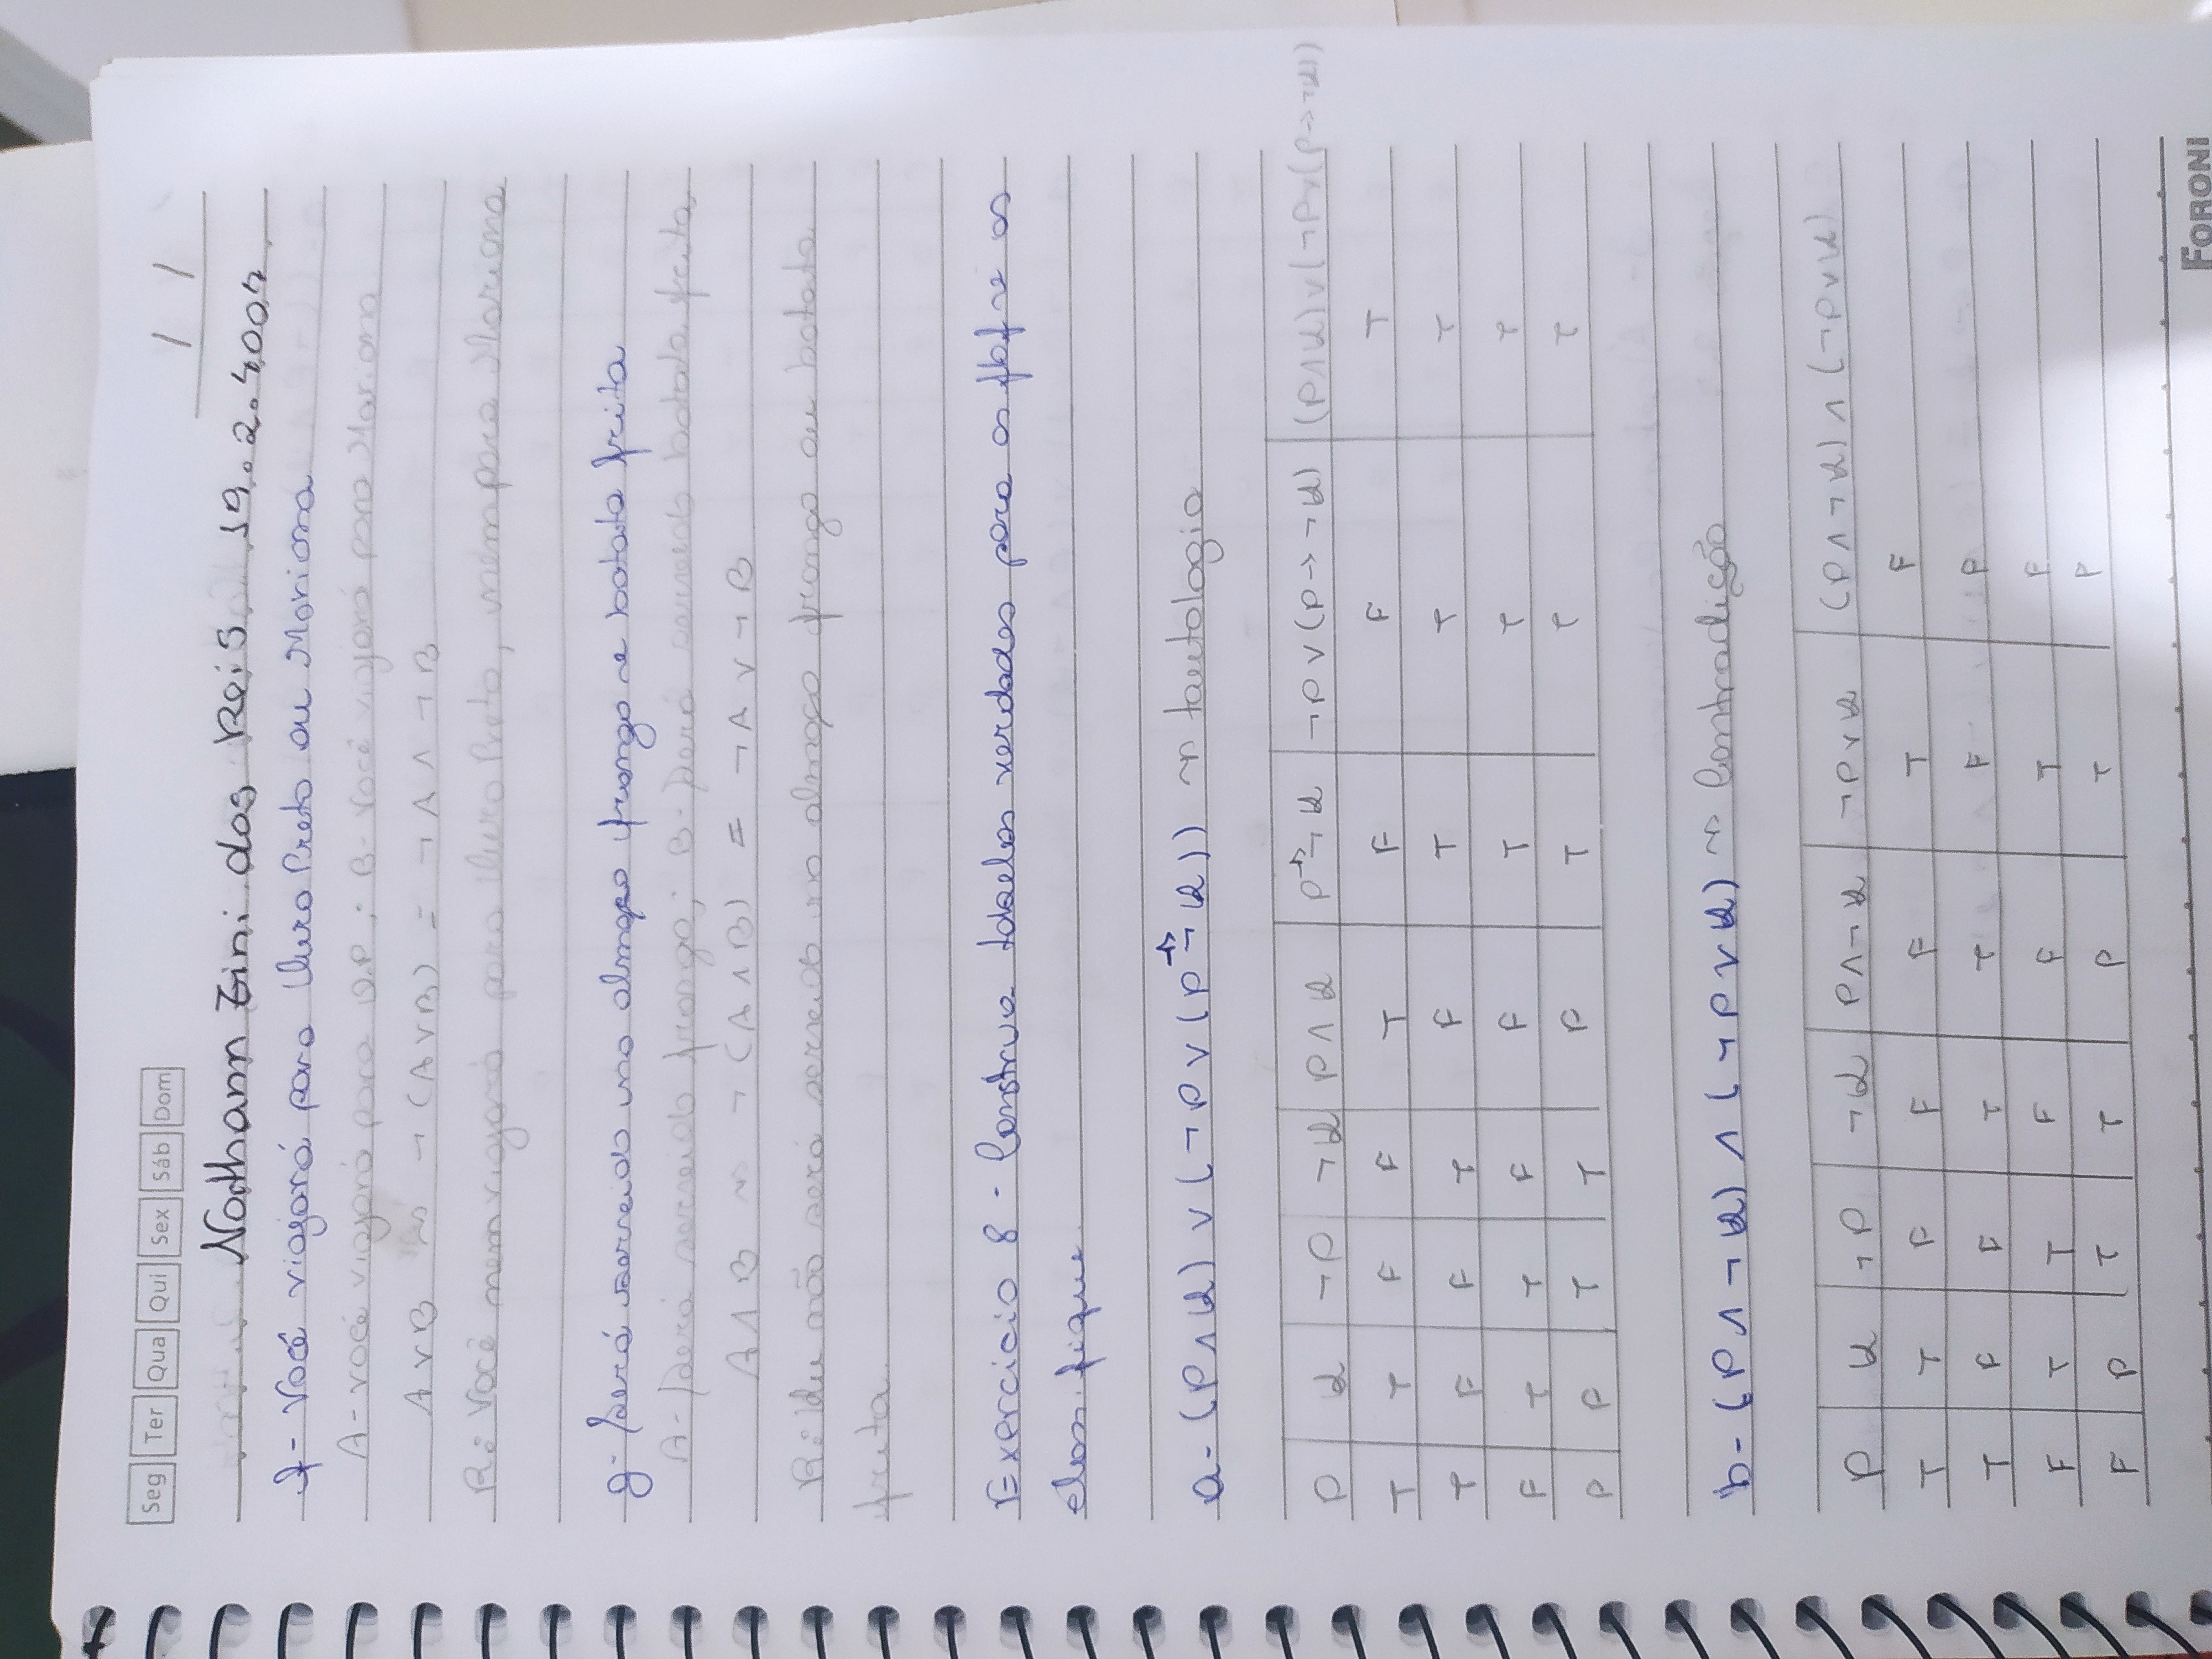 Seg Ter Qua Qui Sex Sáb Dom
/ /
Nathann Zini dos Reis 19.2.4007
f- Você viajará para Ouro Preto ou Mariana
A- você viajará para O.P; B- Você viajará para Mariana
A ∨ B ~> ¬ (A ∨ B) = ¬ A ∧ ¬ B
R: Você nem viajará para Ouro Preto, nem para Mariana
g- Será servido no almoço frango e batata frita
A- Será servido frango; B- Será servido batata frita
A ∧ B ~> ¬ (A ∧ B) = ¬ A ∨ ¬ B
R: Ou não será servido no almoço frango ou batata
frita.
Exercicio 8 - Construa tabelas verdades para as fbf e as
classifique
a- (P ∧ Q) ∨ (¬P ∨ (P → ¬ Q)) ~> tautologia
P Q ¬P ¬Q P ∧ Q P → ¬ Q ¬P ∨ (P → ¬Q) (P ∧ Q) ∨ (¬P ∨ (P → ¬Q))
T T F F T F F T
T F F T F T T T
F T T F F T T T
F F T T F T T T
b- (P ∧ ¬ Q) ∧ (¬P ∨ Q) ~> Contradição
P Q ¬P ¬Q P ∧ ¬ Q ¬P ∨ Q (P ∧ ¬ Q) ∧ (¬P ∨ Q)
T T F F F T F
T F F T T F F
F T T F F T F
F F T T F T F
FORONI